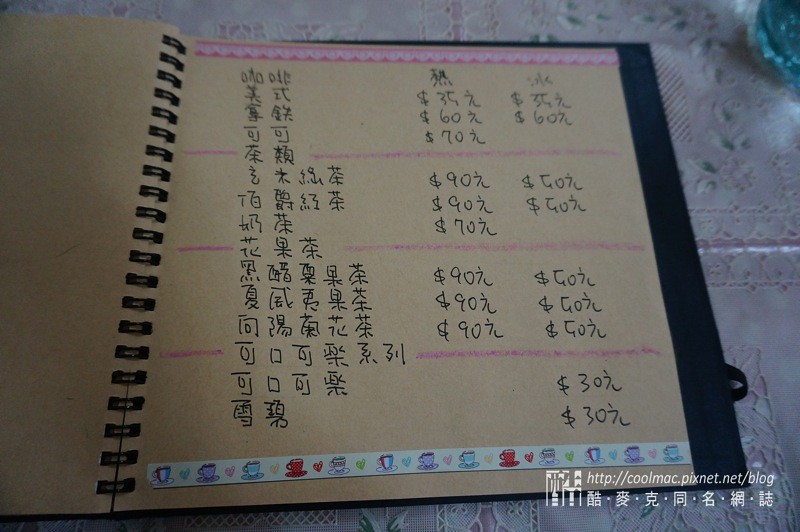 咖啡 熱 冰
美式 $35元 $35元
拿鉄 $60元 $60元
可可 $70元
茶類
玄米綠茶 $90元 $50元
伯爵紅茶 $90元 $50元
奶茶 $70元
花果茶
黑醋栗果茶 $90元 $50元
夏威夷果茶 $90元 $50元
向陽菊花茶 $90元 $50元
可口可樂系列
可口可樂 $30元
雪碧 $30元
http://coolmac.pixnet.net/blog
酷・麥・克・同・名・網・誌